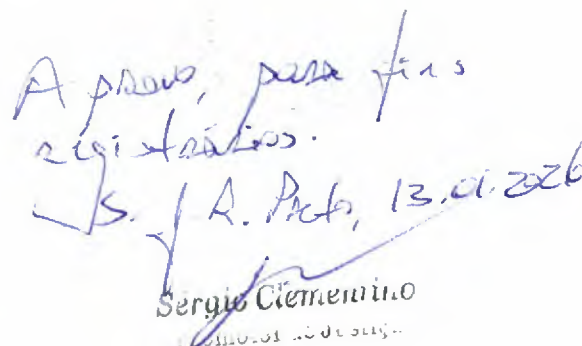 Aprovo, para fins
registrários.
S. J. R. Preto, 13.01.2026
Sergio Clementino